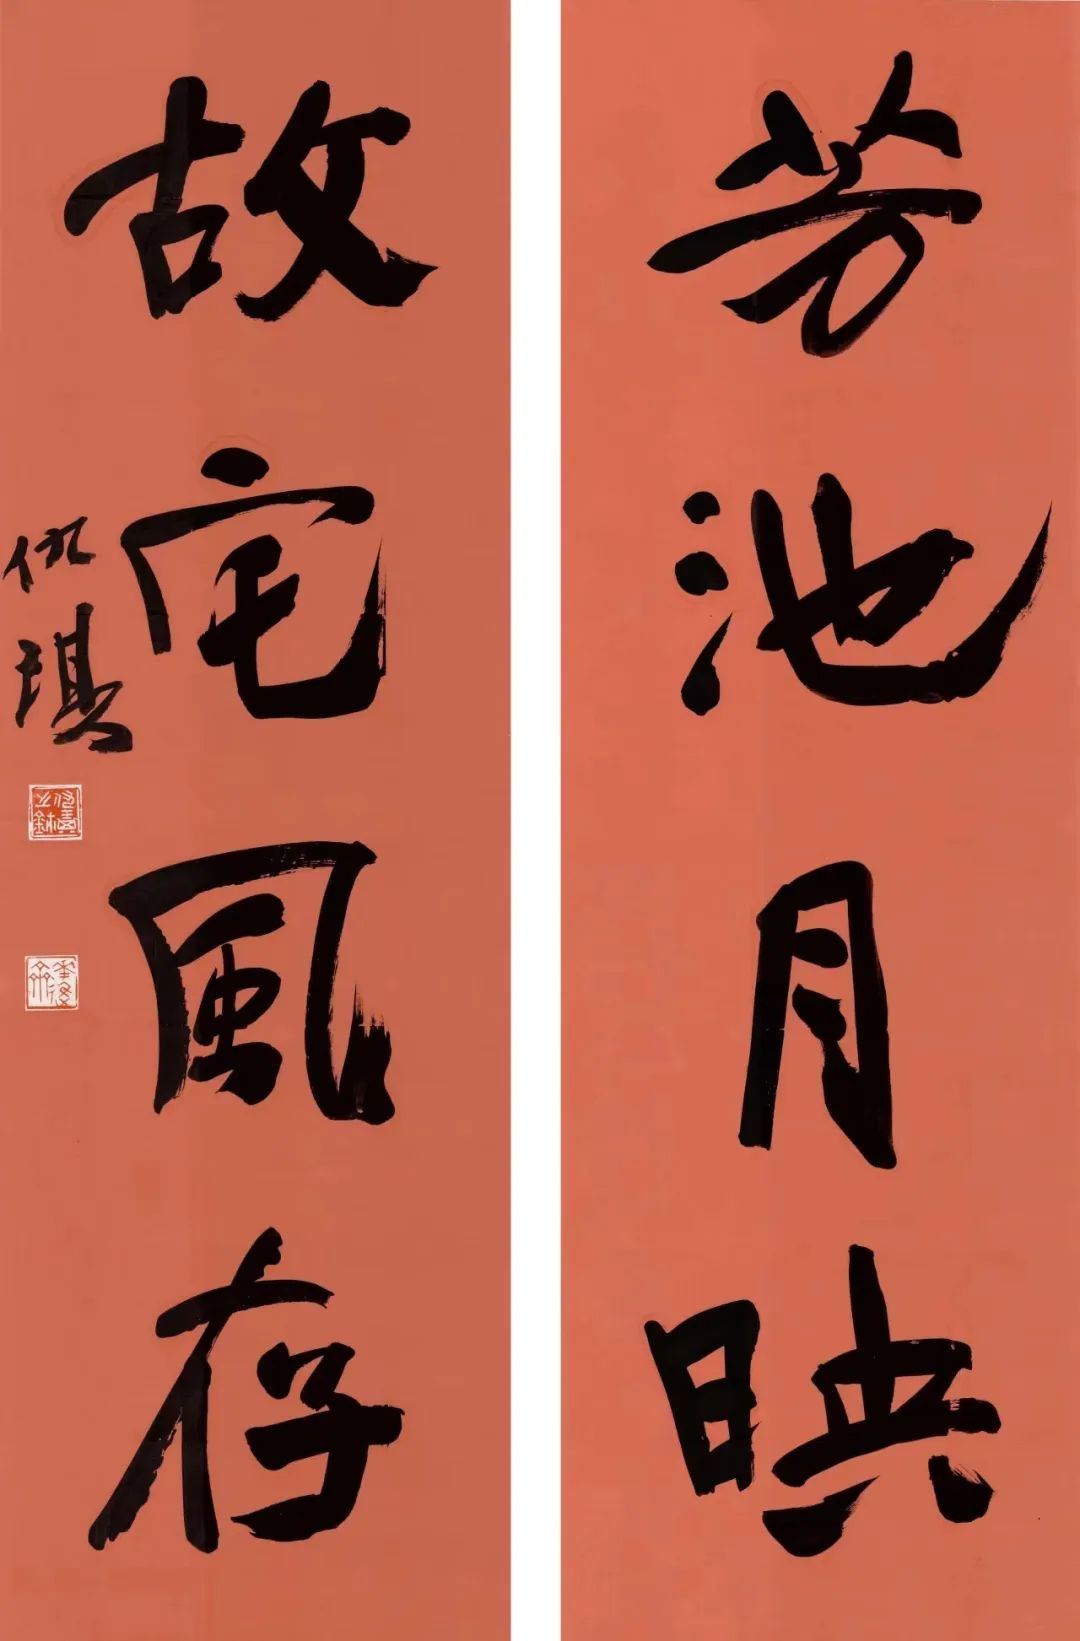 芳池月映
故宅風存
仇琪